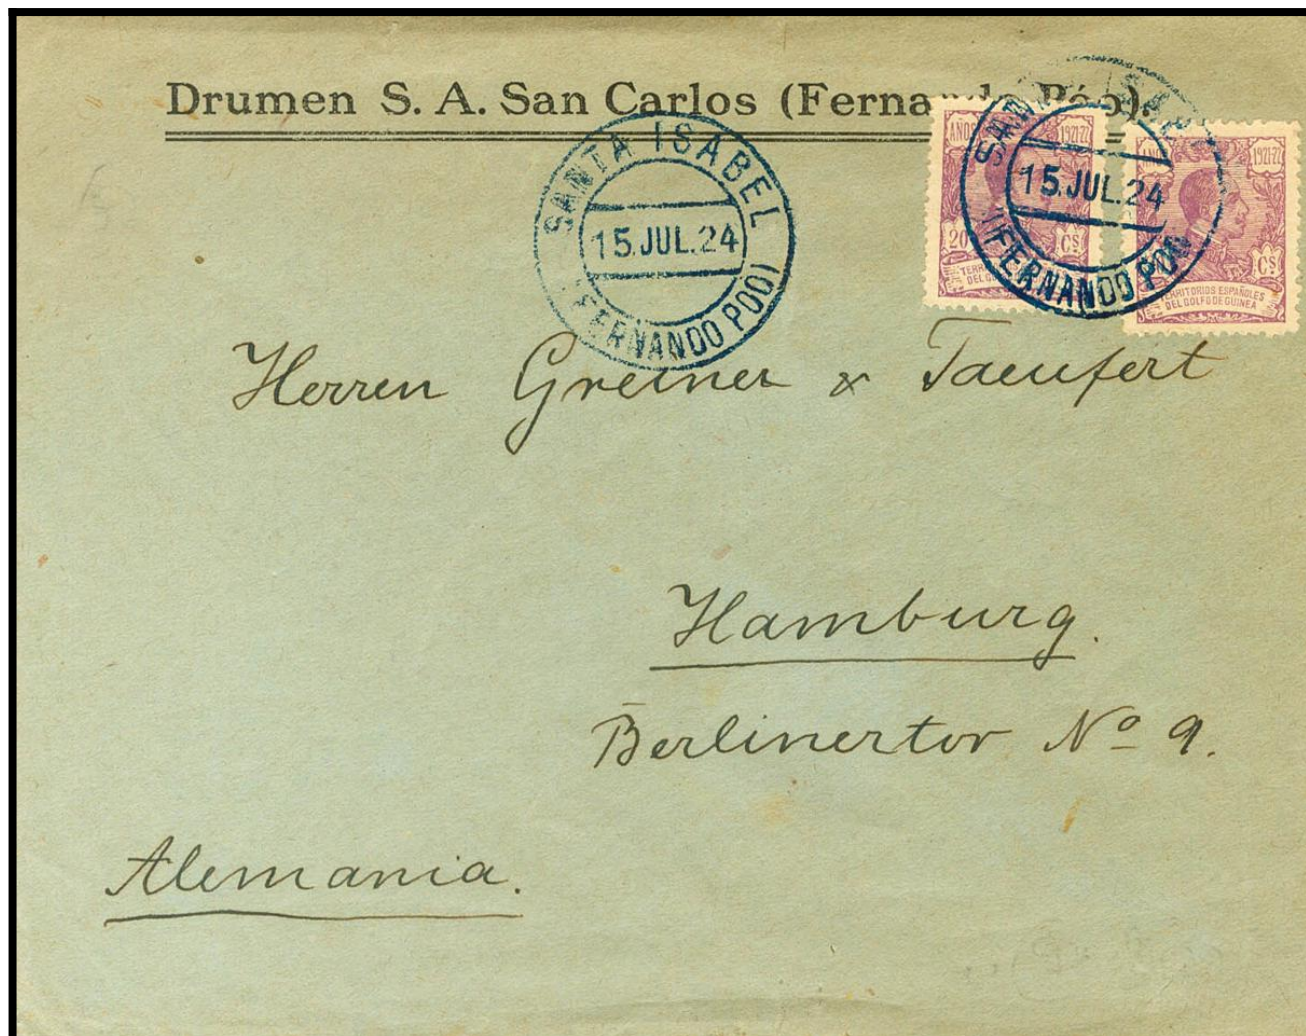 Drumen S. A. San Carlos (Fernando Póo).
SANTA ISABEL
15.JUL.24
(FERNANDO POO)
SANTA ISABEL
15.JUL.24
(FERNANDO POO)
AÑOS 1921-22
20 Cs
AÑOS 1921-22
Cs
TERRITORIOS ESPAÑOLES
DEL GOLFO DE GUINEA
Herren Greiner & Taeufert
Hamburg.
Berlinertor No 9.
Alemania.